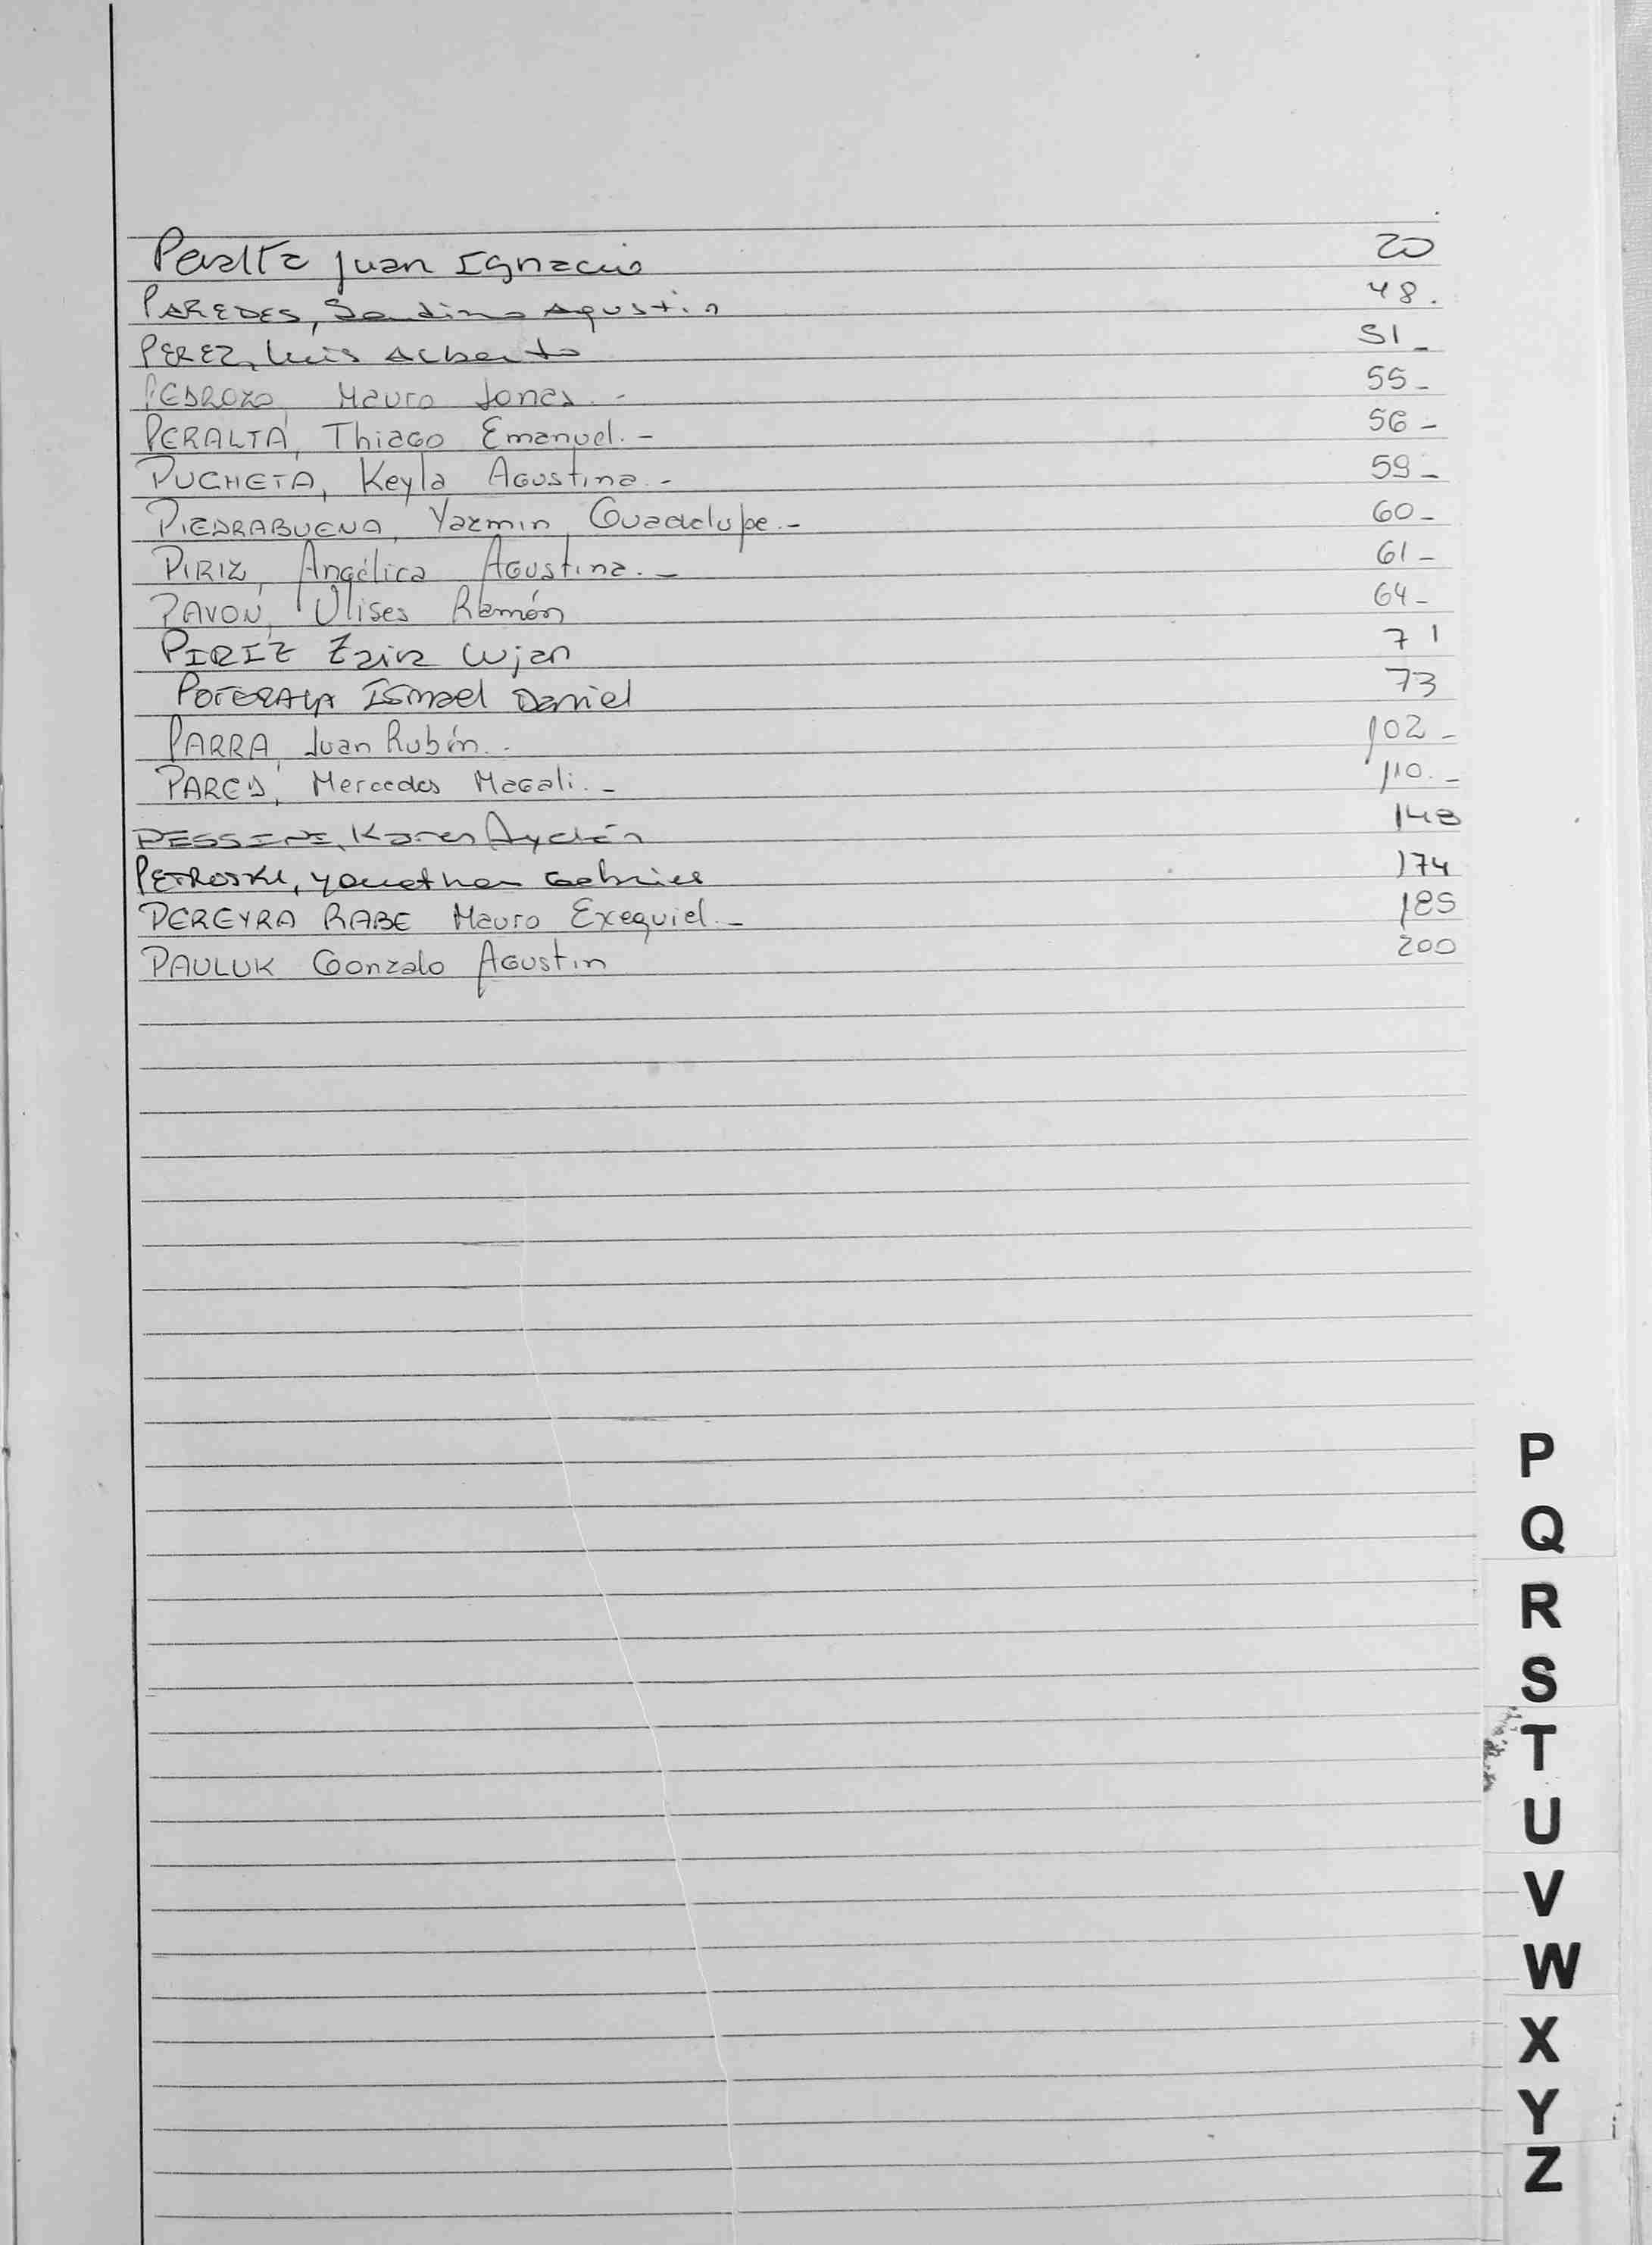 Peralta Juan Ignacio 20
PAREDES, Santino Agustin 48.
PEREZ, Luis Alberto 51-
PEDROZO, Mauro Jonas.- 55-
PERALTA, Thiago Emanuel.- 56-
PUCHETA, Keyla Agustina.- 59-
PIEDRABUENA, Yazmin Guadalupe.- 60-
PIRIZ, Angélica Agustina.- 61-
PAVON, Ulises Ramón 64-
PIRIZ Lujan 71
Ismael Daniel 73
PARRA, Juan Rubén.- 102-
PARED, Mercedes Magali.- 110.-
Karen Aylén 148
PETROSKI, Yonathan Gabriel 174
PEREYRA RABE Mauro Exequiel.- 185
PAULUK Gonzalo Agustin 200
P
Q
R
S
T
U
V
W
X
Y
Z